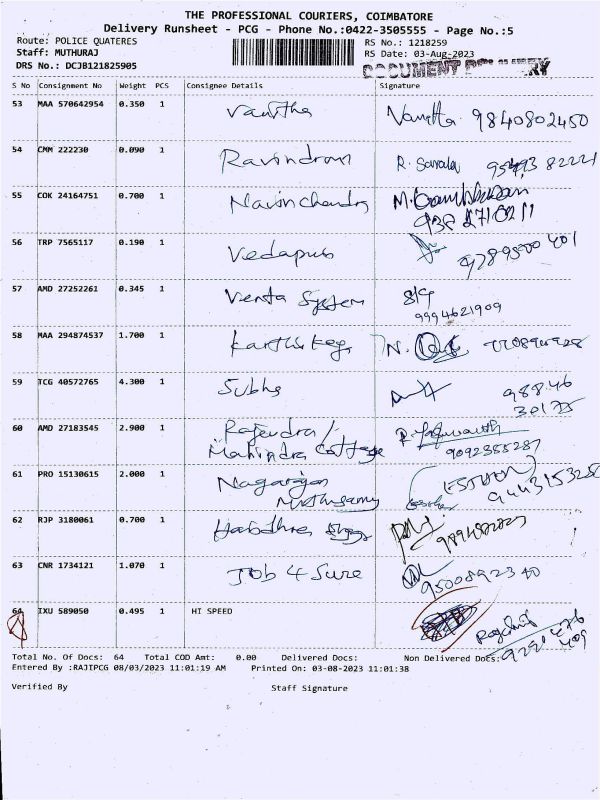 THE PROFESSIONAL COURIERS, COIMBATORE
Delivery Runsheet - PCG - Phone No.:0422-3505555 - Page No.:5
Route: POLICE QUATERES RS No.: 1218259
Staff: MUTHURAJ RS Date: 03-Aug-2023
DRS No.: DCJB121825905 DOCUMENT DELIVERY
S No Consignment No Weight PCS Consignee Details Signature
53 MAA 570642954 0.350 1 Vanitha Vanitha 9840802450
54 CMM 222230 0.090 1 Ravindran R. Sarala 82221
55 COK 24164751 0.700 1 Navinchandra
56 TRP 7565117 0.190 1 Vedapuri 9789500401
57 AMD 27252261 0.345 1 Venta System
9994621909
58 MAA 294874537 1.700 1 Karthikeyan N.
59 TCG 40572765 4.300 1 Subha 98846
30175
60 AMD 27183545 2.900 1 Rajendra /
Mahindra Cottage 9092355287
61 PRO 15130615 2.000 1 Nagarajan (ESTHER)
Muthusamy 9443153258
62 RJP 3180061 0.700 1
63 CNR 1734121 1.070 1 Job 4 Sure 9500892340
64 IXU 589050 0.495 1 HI SPEED
Total No. Of Docs: 64 Total COD Amt: 0.00 Delivered Docs: Non Delivered Docs:
Entered By :RAJIPCG 08/03/2023 11:01:19 AM Printed On: 03-08-2023 11:01:38
Verified By Staff Signature